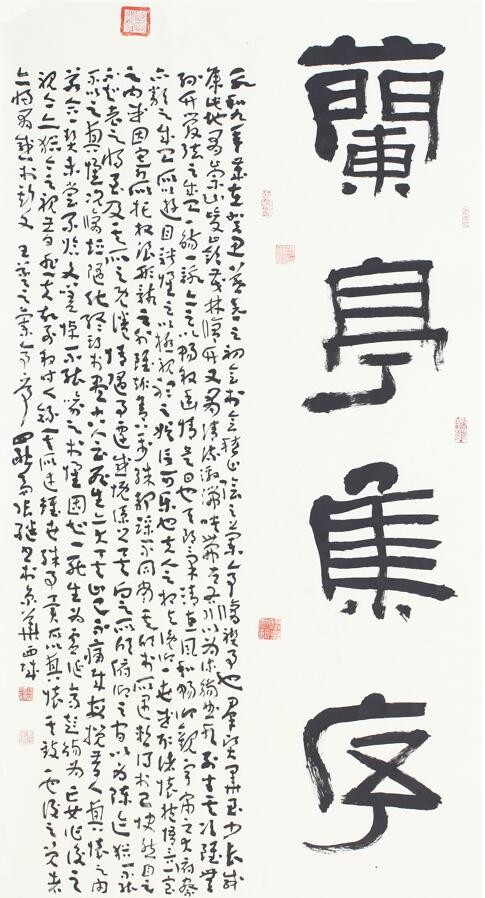 蘭亭集序
永和九年歲在癸丑暮春之初會於會稽山陰之蘭亭脩禊事也群賢畢至少長咸
集此地有崇山峻嶺茂林脩竹又有清流激湍映帶左右引以為流觴曲水列坐其次雖無
絲竹管弦之盛一觴一詠亦足以暢敘幽情是日也天朗氣清惠風和暢仰觀宇宙之大俯察
品類之盛所以遊目騁懷足以極視聽之娛信可樂也夫人之相與俯仰一世或取諸懷抱悟言一室
之內或因寄所託放浪形骸之外雖趣舍萬殊靜躁不同當其欣於所遇暫得於己快然自足
不知老之將至及其所之既倦情隨事遷感慨係之矣向之所欣俯仰之間以為陳迹猶不能
不以之興懷況脩短隨化終期於盡古人云死生亦大矣豈不痛哉每攬昔人興懷之由
若合一契未嘗不臨文嗟悼不能喻之於懷固知一死生為虛誕齊彭殤為妄作後之
視今亦猶今之視昔悲夫故列敘時人錄其所述雖世殊事異所以興懷其致一也後之覽者
亦將有感於斯文 王羲之蘭亭序 張繼書於京華西城